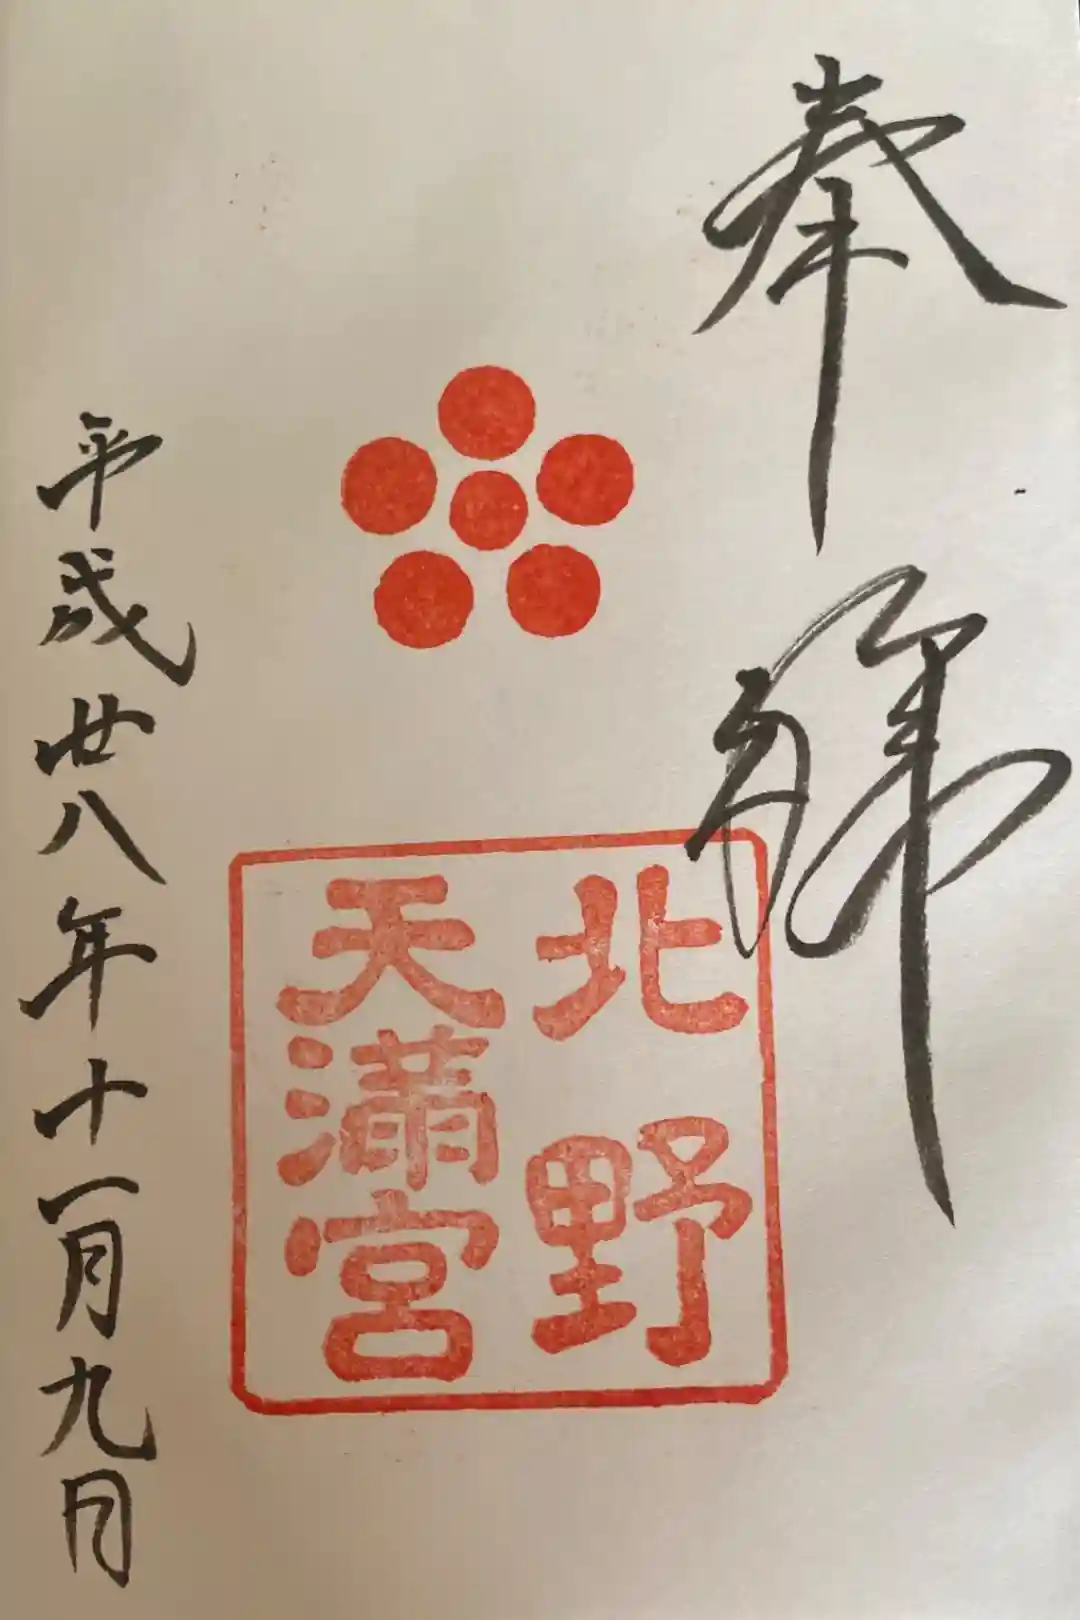 奉拝
北野
天満宮
平成廿八年十一月九日